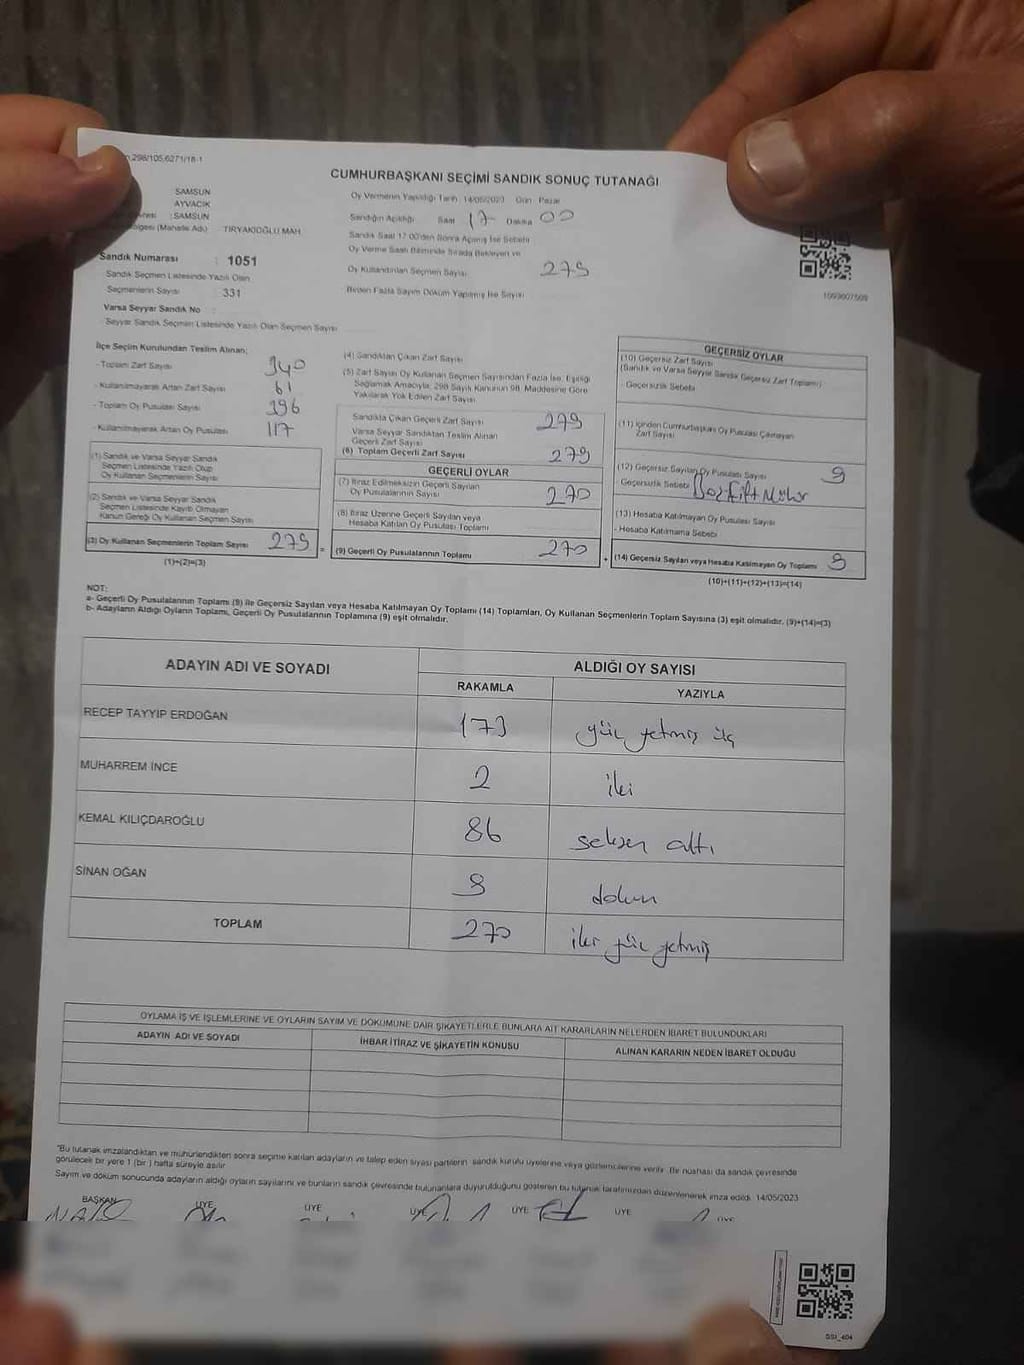 298/105,6271/18-1
CUMHURBAŞKANI SEÇİMİ SANDIK SONUÇ TUTANAĞI
SAMSUN
AYVACIK
: SAMSUN
(Mahalle Adı) TIRYAKİOĞLU MAH
Sandık Numarası : 1051
Sandık Seçmen Listesinde Yazılı Olan
Seçmenlerin Sayısı 331
Varsa Seyyar Sandık No
Seyyar Sandık Seçmen Listesinde Yazılı Olan Seçmen Sayısı
Oy Vermenin Yapıldığı Tarih 14/05/2023 Gün Pazar
Sandığın Açıldığı Saat 17 Dakika 00
Sandık Saat 17.00'den Sonra Açılmış İse Sebebi
Oy Verme Saati Bitiminde Sırada Bekleyen ve
Oy Kullandırılan Seçmen Sayısı 279
Birden Fazla Sayım Döküm Yapılmış İse Sayısı
1009007509
İlçe Seçim Kurulundan Teslim Alınan;
- Toplam Zarf Sayısı 340
- Kullanılmayarak Artan Zarf Sayısı 61
- Toplam Oy Pusulası Sayısı 396
- Kullanılmayarak Artan Oy Pusulası 117
(1) Sandık ve Varsa Seyyar Sandık
Seçmen Listesinde Yazılı Olup
Oy Kullanan Seçmenlerin Sayısı
(2) Sandık ve Varsa Seyyar Sandık
Seçmen Listesinde Kayıtlı Olmayan
Kanun Gereği Oy Kullanan Seçmen Sayısı
(3) Oy Kullanan Seçmenlerin Toplam Sayısı 279 =
(1)+(2)=(3)
(4) Sandıktan Çıkan Zarf Sayısı
(5) Zarf Sayısı Oy Kullanan Seçmen Sayısından Fazla İse, Eşitliği
Sağlamak Amacıyla, 298 Sayılı Kanunun 98. Maddesine Göre
Yakılarak Yok Edilen Zarf Sayısı
Sandıkta Çıkan Geçerli Zarf Sayısı 279
Varsa Seyyar Sandıktan Teslim Alınan
Geçerli Zarf Sayısı
(6) Toplam Geçerli Zarf Sayısı 279
GEÇERLİ OYLAR
(7) İtiraz Edilmeksizin Geçerli Sayılan
Oy Pusulalarının Sayısı 270
(8) İtiraz Üzerine Geçerli Sayılan veya
Hesaba Katılan Oy Pusulası Toplamı
(9) Geçerli Oy Pusulalarının Toplamı 270 +
GEÇERSİZ OYLAR
(10) Geçersiz Zarf Sayısı
(Sandık ve Varsa Seyyar Sandık Geçersiz Zarf Toplamı)
- Geçersizlik Sebebi
(11) İçinden Cumhurbaşkanı Oy Pusulası Çıkmayan
Zarf Sayısı
(12) Geçersiz Sayılan Oy Pusulası Sayısı 9
- Geçersizlik Sebebi Boş Çift Mühür
(13) Hesaba Katılmayan Oy Pusulası Sayısı
- Hesaba Katılmama Sebebi
(14) Geçersiz Sayılan veya Hesaba Katılmayan Oy Toplamı 9
(10)+(11)+(12)+(13)=(14)
NOT:
a- Geçerli Oy Pusulalarının Toplamı (9) ile Geçersiz Sayılan veya Hesaba Katılmayan Oy Toplamı (14) Toplamları, Oy Kullanan Seçmenlerin Toplam Sayısına (3) eşit olmalıdır. (9)+(14)=(3)
b- Adayların Aldığı Oyların Toplamı, Geçerli Oy Pusulalarının Toplamına (9) eşit olmalıdır.
ADAYIN ADI VE SOYADI ALDIĞI OY SAYISI
RAKAMLA YAZIYLA
RECEP TAYYIP ERDOĞAN 173 yüz yetmiş üç
MUHARREM İNCE 2 iki
KEMAL KILIÇDAROĞLU 86 seksen altı
SİNAN OĞAN 9 dokuz
TOPLAM 270 iki yüz yetmiş
OYLAMA İŞ VE İŞLEMLERİNE VE OYLARIN SAYIM VE DÖKÜMÜNE DAİR ŞİKAYETLERLE BUNLARA AİT KARARLARIN NELERDEN İBARET BULUNDUKLARI
ADAYIN ADI VE SOYADI İHBAR İTİRAZ VE ŞİKAYETİN KONUSU ALINAN KARARIN NEDEN İBARET OLDUĞU
"Bu tutanak imzalandıktan ve mühürlendikten sonra seçime katılan adayların ve talep eden siyasi partilerin sandık kurulu üyelerine veya gözlemcilerine verilir. Bir nüshası da sandık çevresinde
görülecek bir yere 1 (bir) hafta süreyle asılır
Sayım ve döküm sonucunda adayların aldığı oyların sayılarını ve bunların sandık çevresinde bulunanlara duyurulduğunu gösteren bu tutanak tarafımızdan düzenlenerek imza edildi. 14/05/2023
BAŞKAN ÜYE ÜYE ÜYE ÜYE ÜYE ÜYE
SSI_404